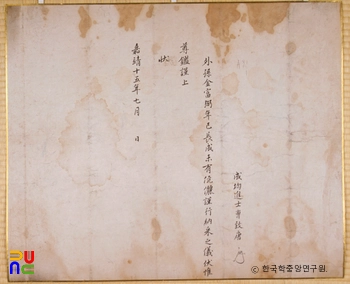 成均進士曺致唐
外孫金富弼年已長成未有伉儷謹行納采之儀伏惟
尊鑑謹上
狀
嘉靖十五年七月 日
© 한국학중앙연구원